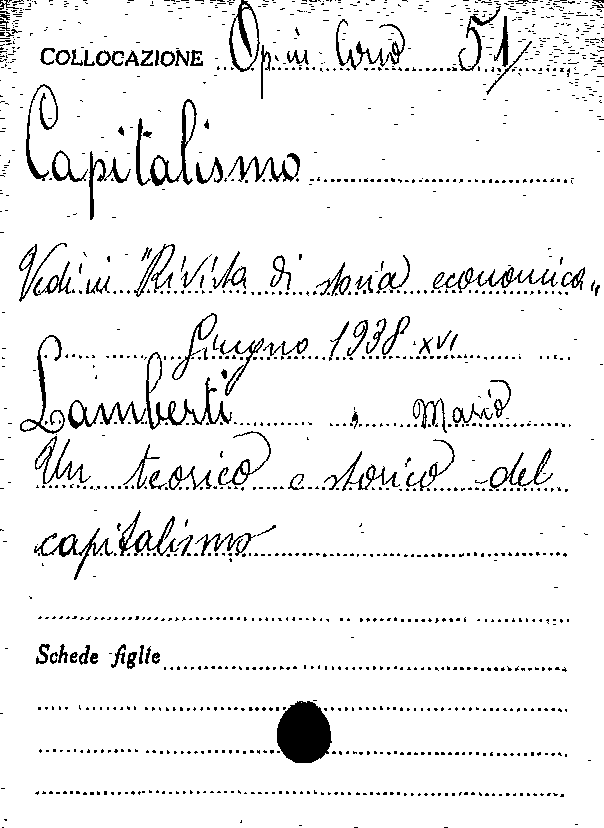 COLLOCAZIONE Op. in Corso 51/
Capitalismo
Vedi in "Rivista di storia economica"
Giugno 1938 XVI
Lamberti, Mario
Un teorico e storico del
capitalismo
Schede figlie